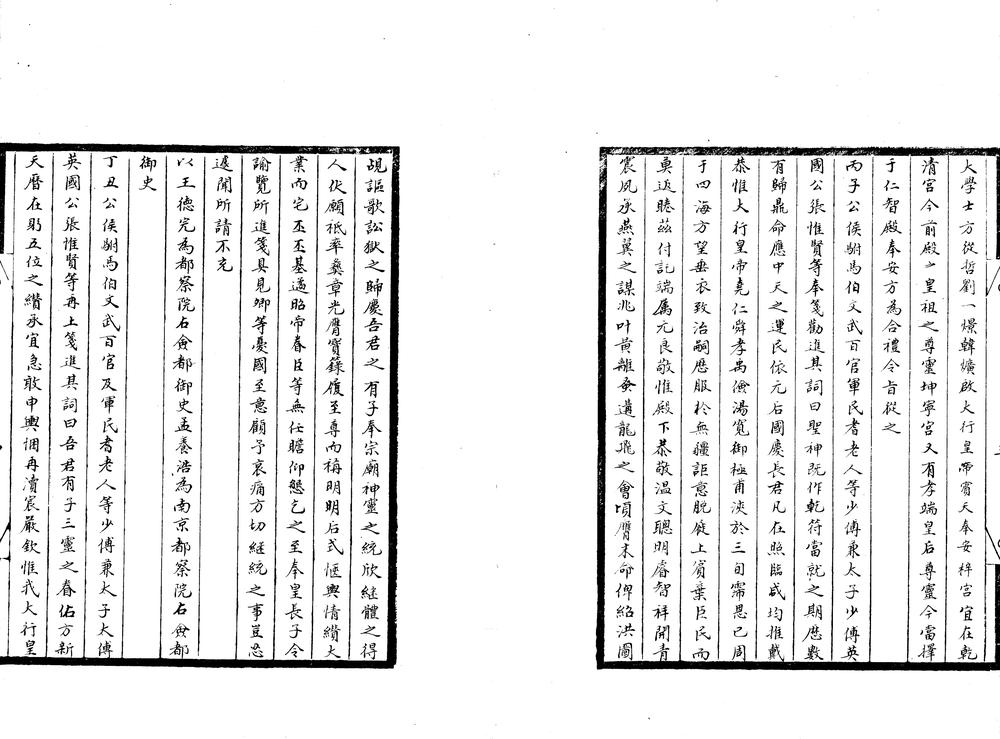 大學士方從哲劉一燝韓爌啟大行皇帝賓天奉安梓宮宜在乾
清宮今前殿少皇祖之尊靈坤寧宮又有孝端皇后尊靈今當擇
于仁智殿奉安方為合禮令旨從之
丙子公侯駙馬伯文武百官軍民耆老人等少傅兼太子少傅英
國公張惟賢等奉箋勸進其詞曰聖神既作乾符當就之期曆數
有歸鼎命應中天之運民依元后國慶長君凡在照臨咸均推戴
恭惟大行皇帝堯仁舜孝禹儉湯寬御極甫浹於三旬霈恩已周
于四海方望垂衣致治嗣曆服於無疆詎意脫屣上賓棄臣民而
奠返睠茲付託端屬元良敬惟殿下恭敬溫文聰明睿智祥開青
震夙承燕翼之謀兆叶黃離蚤遘龍飛之會頃膺末命俾紹洪圖
覬謳歌訟獄之歸慶吾君之有子奉宗廟神靈之統欣繼體之得
人伏願祗率彝章光膺寶籙履至尊而稱明明后式愜輿情纘大
業而宅丕丕基遹昭帝眷臣等無任瞻仰懇乞之至奉皇長子令
諭覽所進箋具見卿等憂國至意顧予哀痛方切繼統之事豈忍
遽聞所請不允
以王德完為都察院右僉都御史孟養浩為南京都察院右僉都
御史
丁丑公侯駙馬伯文武百官及軍民耆老人等少傅兼太子太傅
英國公張惟賢等再上箋進其詞曰吾君有子三靈之眷佑方新
天曆在躬五位之纘承宜急敢申輿悃再凟宸嚴欽惟我大行皇